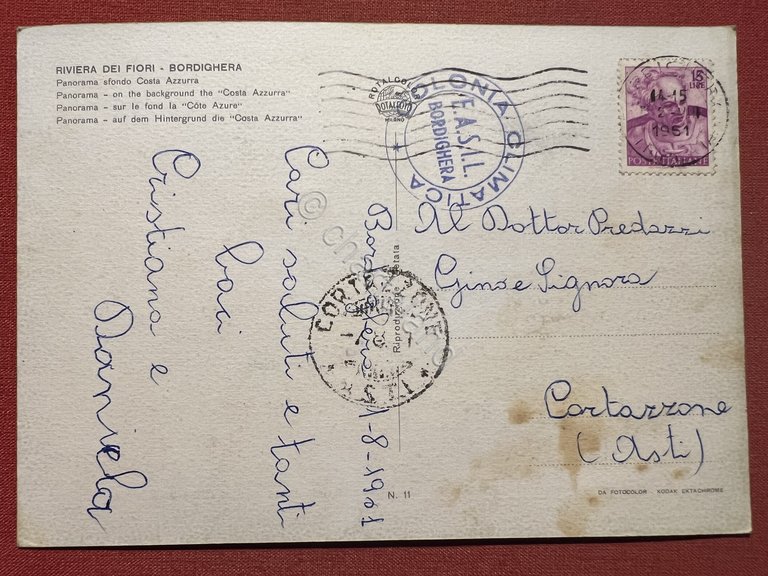 RIVIERA DEI FIORI - BORDIGHERA
Panorama sfondo Costa Azzurra
Panorama - on the background the "Costa Azzurra"
Panorama - sur le fond la "Côte Azure"
Panorama - auf dem Hintergrund die "Costa Azzurra"
ROTALCOLOR
ROTALFOTO
MILANO
COLONIA CLIMATICA
F.A.S.I.L.
BORDIGHERA
15
LIRE
POSTE ITALIANE
1961
Al Dottor Predazzi
Gino e Signora
Cortazzone
(Asti)
Bordighera 1-8-1961
Cari saluti e tanti
baci
Cristiana e
Daniela
CORTAZZONE
ASTI
Riproduzione vietata
N. 11
DA FOTOCOLOR - KODAK EKTACHROME